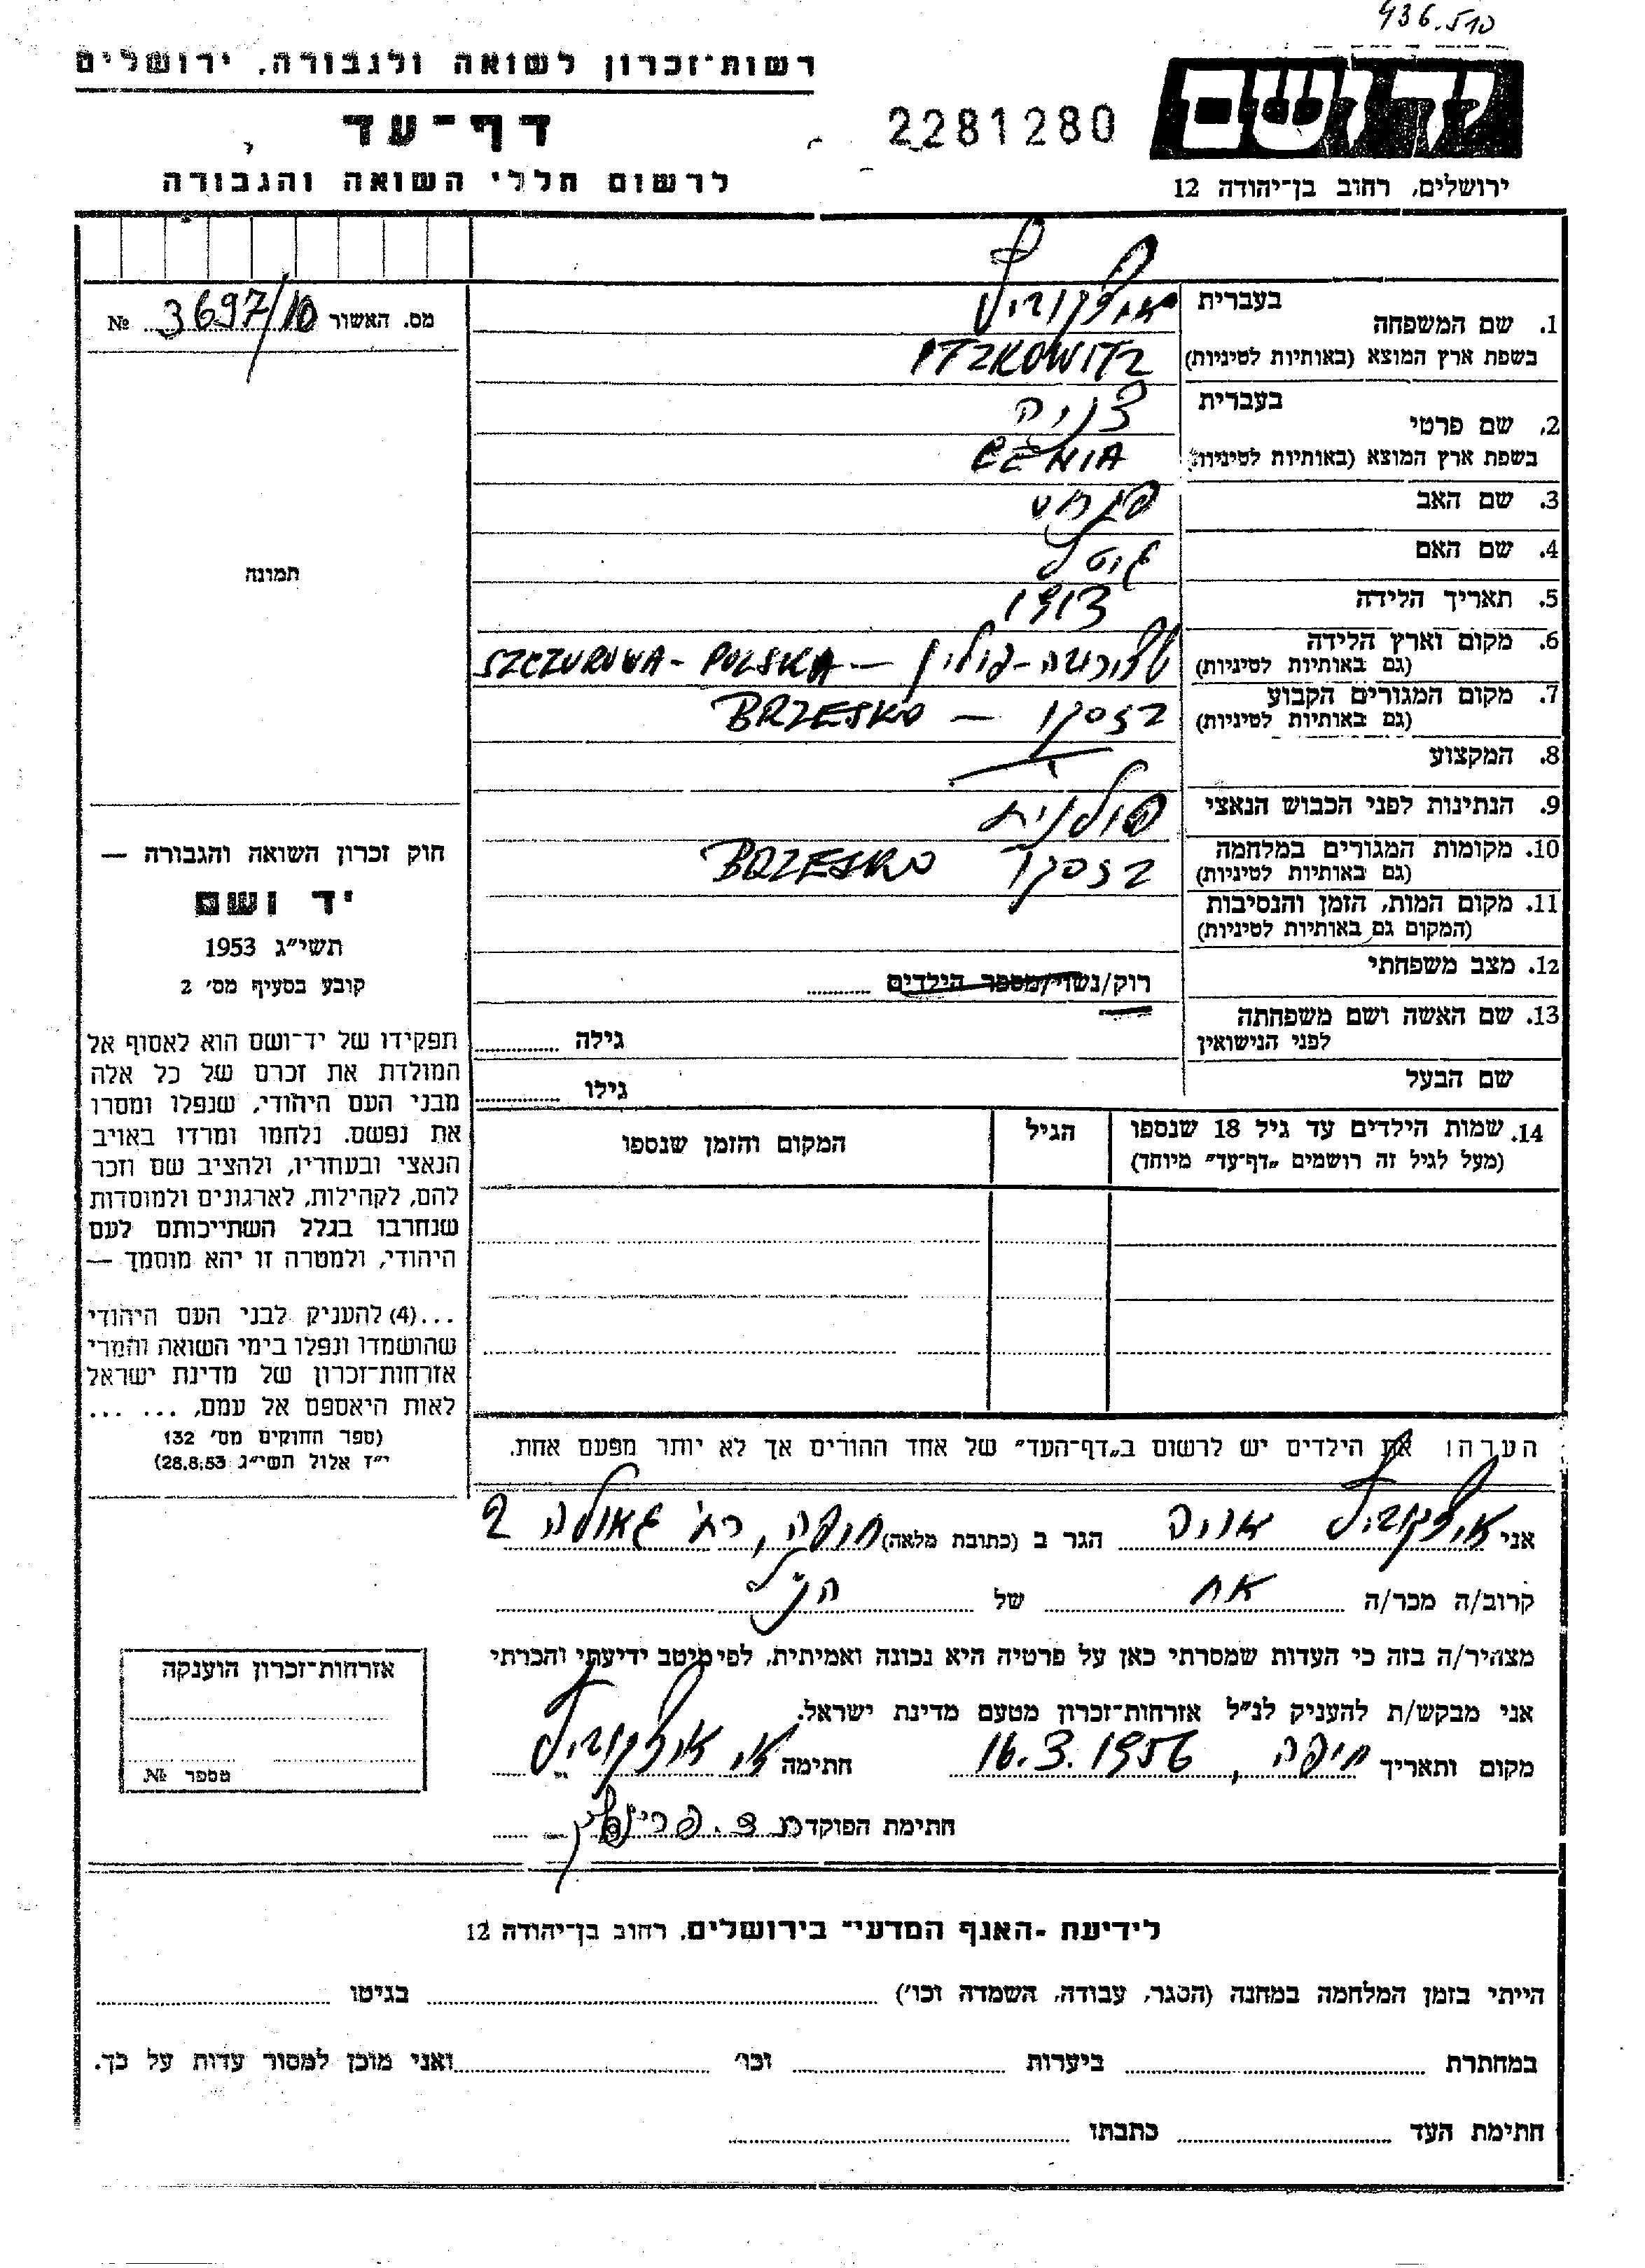 436.510
רשות־זכרון לשואה ולגבורה, ירושלים
דף־עד
לרשום חללי השואה והגבורה
2281280
יד ושם
ירושלים, רחוב בן־יהודה 12
מס. האשור 3697/10 №
תמונה
חוק זכרון השואה והגבורה —
יד ושם
תשי״ג 1953
קובע בסעיף מס׳ 2
תפקידו של יד־ושם הוא לאסוף אל
המולדת את זכרם של כל אלה
מבני העם היהודי, שנפלו ומסרו
את נפשם. נלחמו ומרדו באויב
הנאצי ובעחריו, ולהציב שם וזכר
להם, לקהילות, לארגונים ולמוסדות
שנחרבו בגלל השתייכותם לעם
היהודי, ולמטרה זו יהא מוסמך —
...(4) להעניק לבני העם היהודי
שהושמדו ונפלו בימי השואה והמרי
אזרחות־זכרון של מדינת ישראל
לאות היאספם אל עמם, ... ...
(ספר החוקים מס׳ 132
י״ז אלול תשי״ג 28.8.53)
1. שם המשפחה בעברית איצקוביץ
בשפת ארץ המוצא (באותיות לטיניות) ITZKOWITZ
2. שם פרטי בעברית צניה
בשפת ארץ המוצא (באותיות לטיניות) CENIA
3. שם האב פנחס
4. שם האם גיטל
5. תאריך הלידה 1913
6. מקום וארץ הלידה
(גם באותיות לטיניות) פולין — SZCZUROWA - POLSKA
7. מקום המגורים הקבוע
(גם באותיות לטיניות) בזסקו — BRZESKO
8. המקצוע —
9. הנתינות לפני הכבוש הנאצי פולנית
10. מקומות המגורים במלחמה
(גם באותיות לטיניות) בזסקו BRZESKO
11. מקום המות, הזמן והנסיבות
(המקום גם באותיות לטיניות)
12. מצב משפחתי רוק/נשוי/מספר הילדים
13. שם האשה ושם משפחתה
לפני הנישואין גילה
שם הבעל גילו
14. שמות הילדים עד גיל 18 שנספו
(מעל לגיל זה רושמים „דף־עד״ מיוחד) הגיל המקום והזמן שנספו
הערה: את הילדים יש לרשום ב„דף־העד״ של אחד ההורים אך לא יותר מפעם אחת.
אני איצקוביץ הגר ב (כתובת מלאה) חיפה, רח׳ גאולה
קרוב/ה מכר/ה אח של הנ״ל
מצהיר/ה בזה כי העדות שמסרתי כאן על פרטיה היא נכונה ואמיתית, לפי מיטב ידיעתי והכרתי
אני מבקש/ת להעניק לנ״ל אזרחות־זכרון מטעם מדינת ישראל.
מקום ותאריך חיפה, 16.3.1956 חתימה איצקוביץ
חתימת הפוקד
אזרחות־זכרון הוענקה
מספר №
לידיעת ־האגף המדעי־ בירושלים, רחוב בן־יהודה 12
הייתי בזמן המלחמה במחנה (הסגר, עבודה, השמדה וכו׳) בגיטו
במחתרת ביערות וכו׳ ואני מוכן למסור עדות על כך.
חתימת העד כתבתו